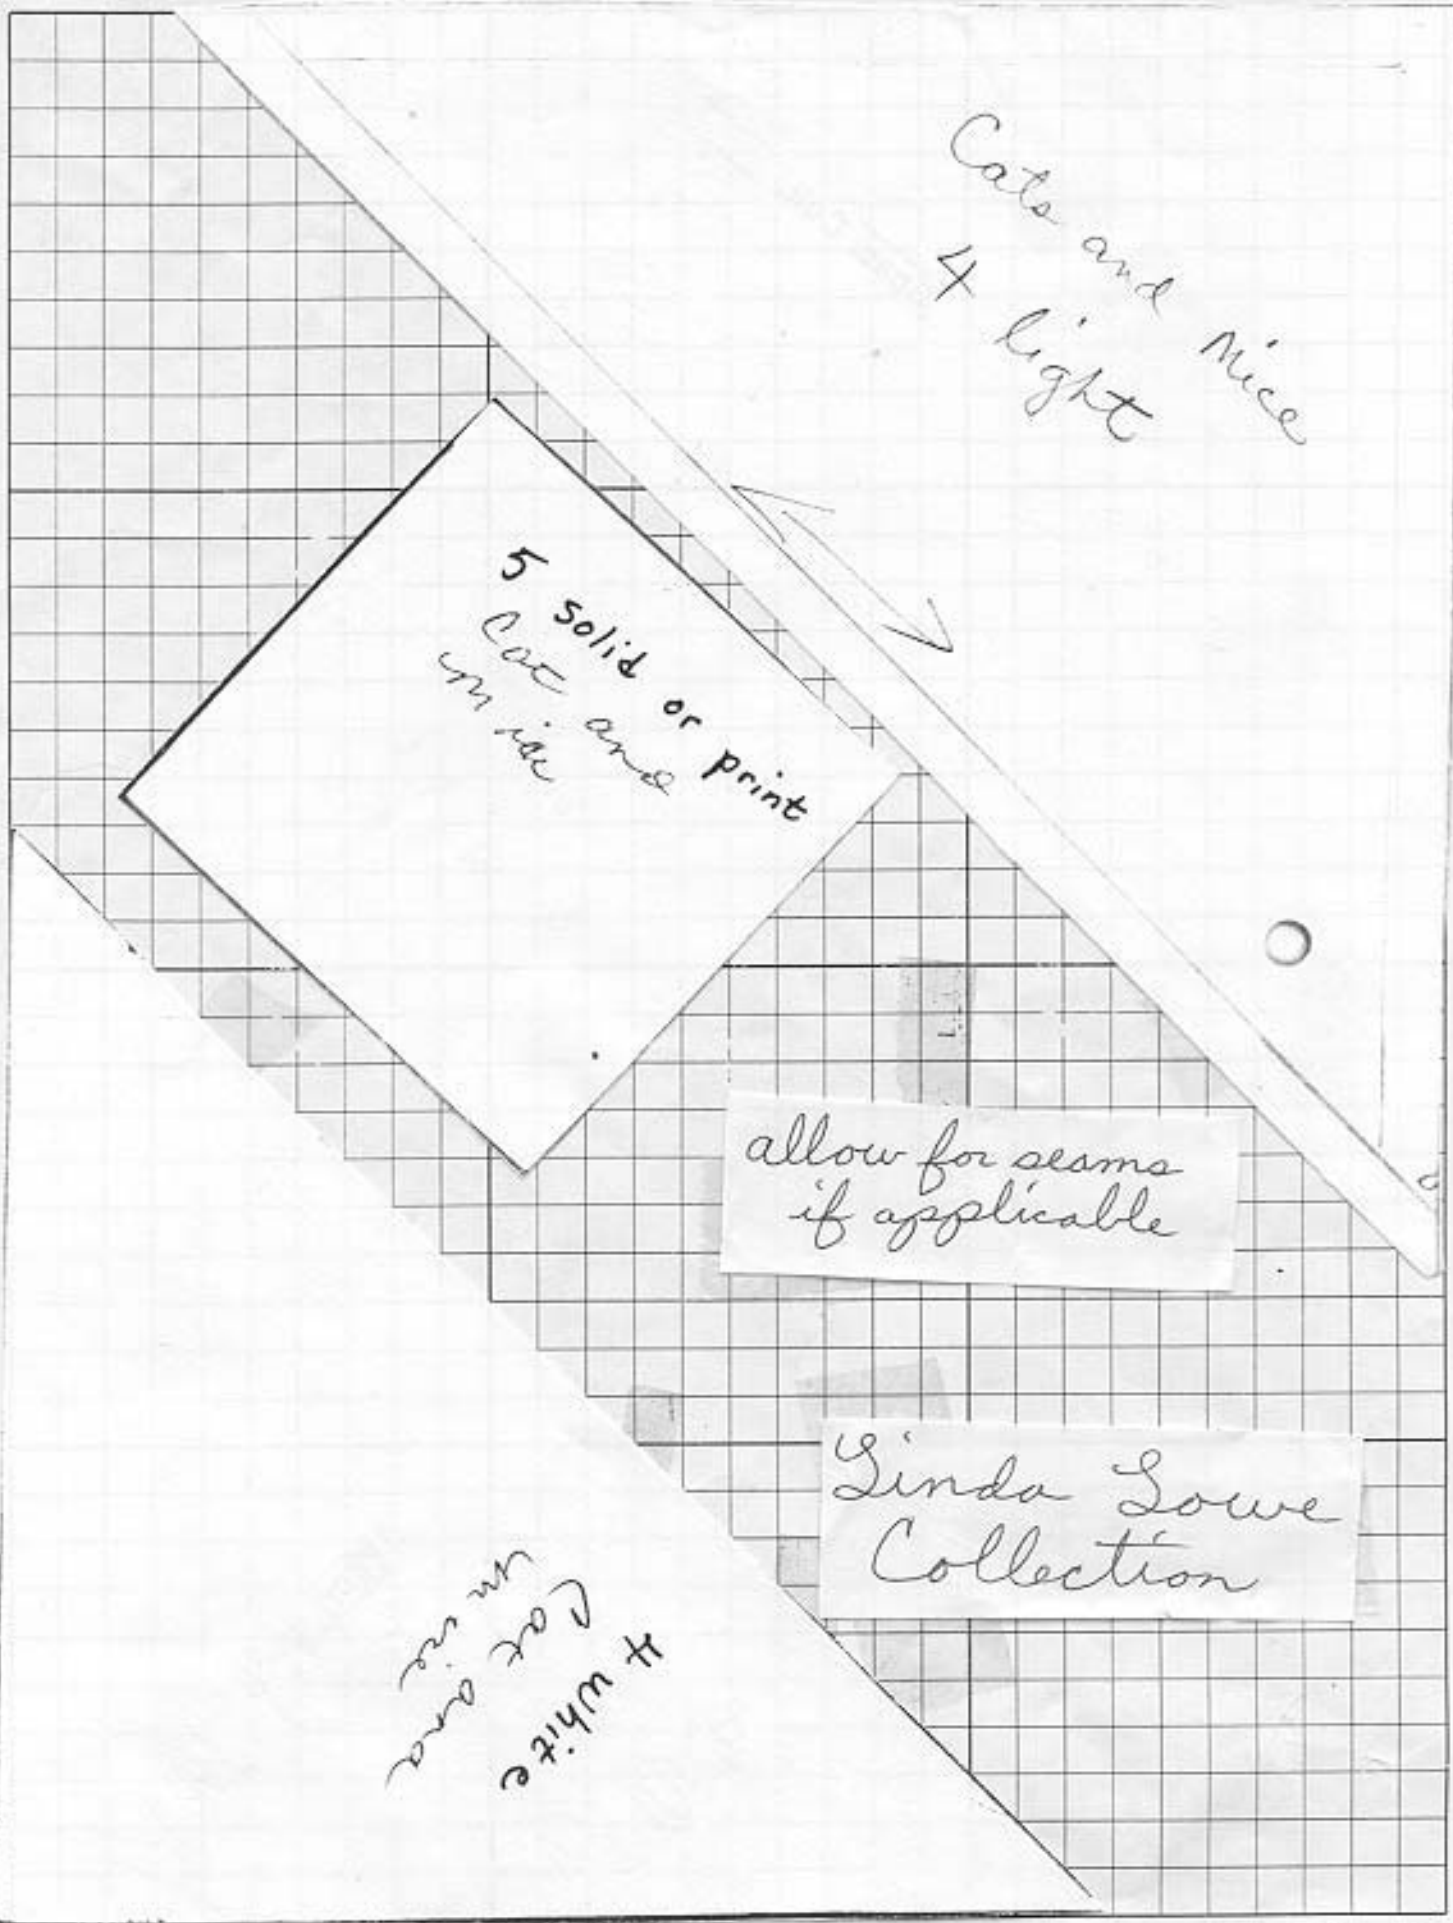 Cats and Mice
4 light
5 solid or print
Cat and
mice
allow for seams
if applicable
Linda Lowe
Collection
4 white
Cat and
mice